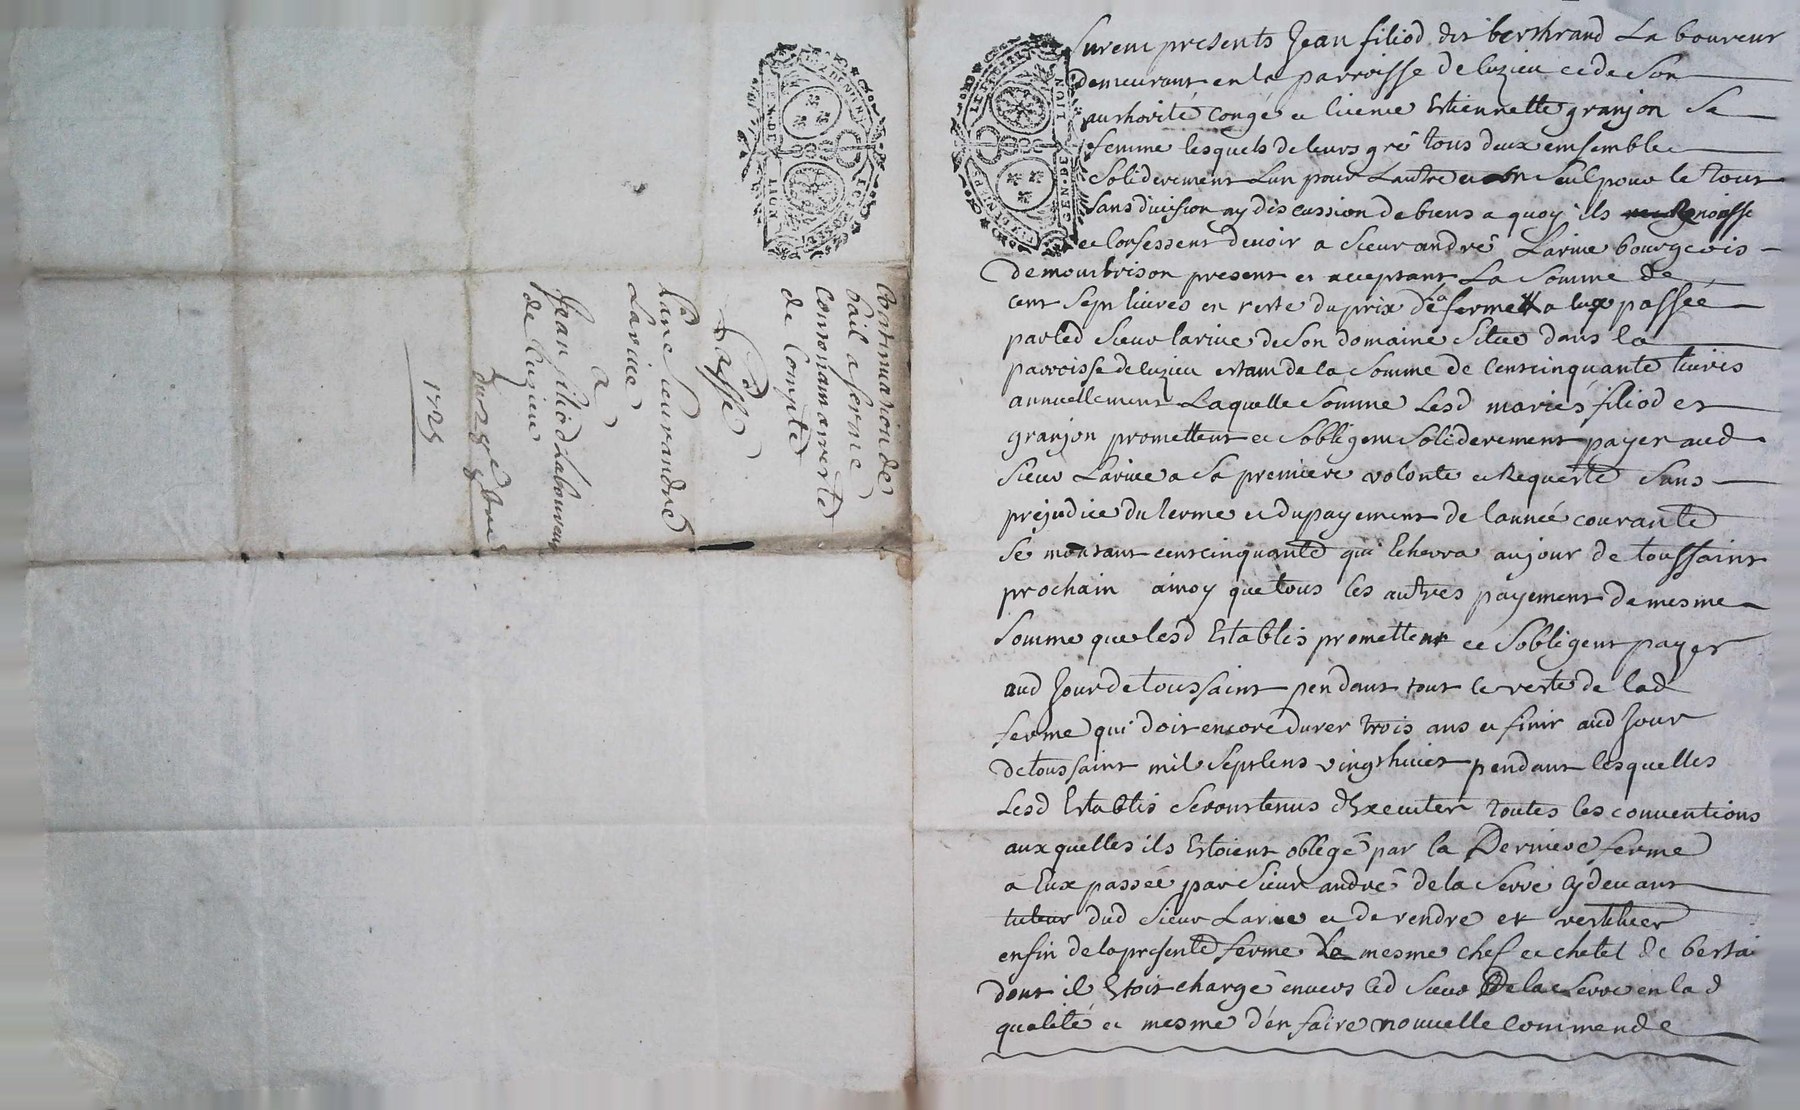 Continuation de
bail a ferme
contenant arreste
de compte
Passé
Par le sieur andré
Larive
a
Jean filiod Laboureur
de Luzieu
du 28e 8bre
1725
GEN DE LION
furent presents Jean filiod dit berthrand La boureur
demeurant en la parroisse de luzieu et de son
authorité congé et licence Estiennette granjon sa
femme lesquels de leurs gré tous deux emsemble
soliderement Lun pour Lautre et un seul pour le tout
sans division ny discussion de biens a quoy ils
et Confessent devoir a sieur andré Larive bourgeois
de mombrison present et acceptant La somme de
cent sept livres en reste du prix de la ferme a eux passée
par led sieur larive de son domaine situé dans la
parroisse de luzieu estant de la somme de Centcinquante livres
annuellement Laquelle somme Lesd mariés filiod et
granjon promettent et sobligent soliderement payer aud
sieur Larive a sa premiere volonte et Requeste sans
préjudice du terme et du payement de lannée courante
se montant centcinquante qui Echerra au jour de toussaint
prochain ainsy que tous les autres payement de mesme
somme que lesd Establis promettent et sobligent payer
aud Jour de toussaint pendant tout le reste de lad
ferme qui doit encore durer trois ans et finir aud Jour
de toussaint mil sept Cens vingt huict pendant lesquelles
Lesd Establis seront tenus d'Executer toutes les conventions
aux quelles ils Estoient obligé par la Derniere ferme
a Eux passée par sieur andré de la Serve cy devant
tuteur dud sieur Larive et de rendre et restituer
enfin de la presente ferme Le mesme chef et chetel de
dont il Estoit chargé envers led sieur De la Serve en lad
qualité et mesme d'en faire nouvelle commende